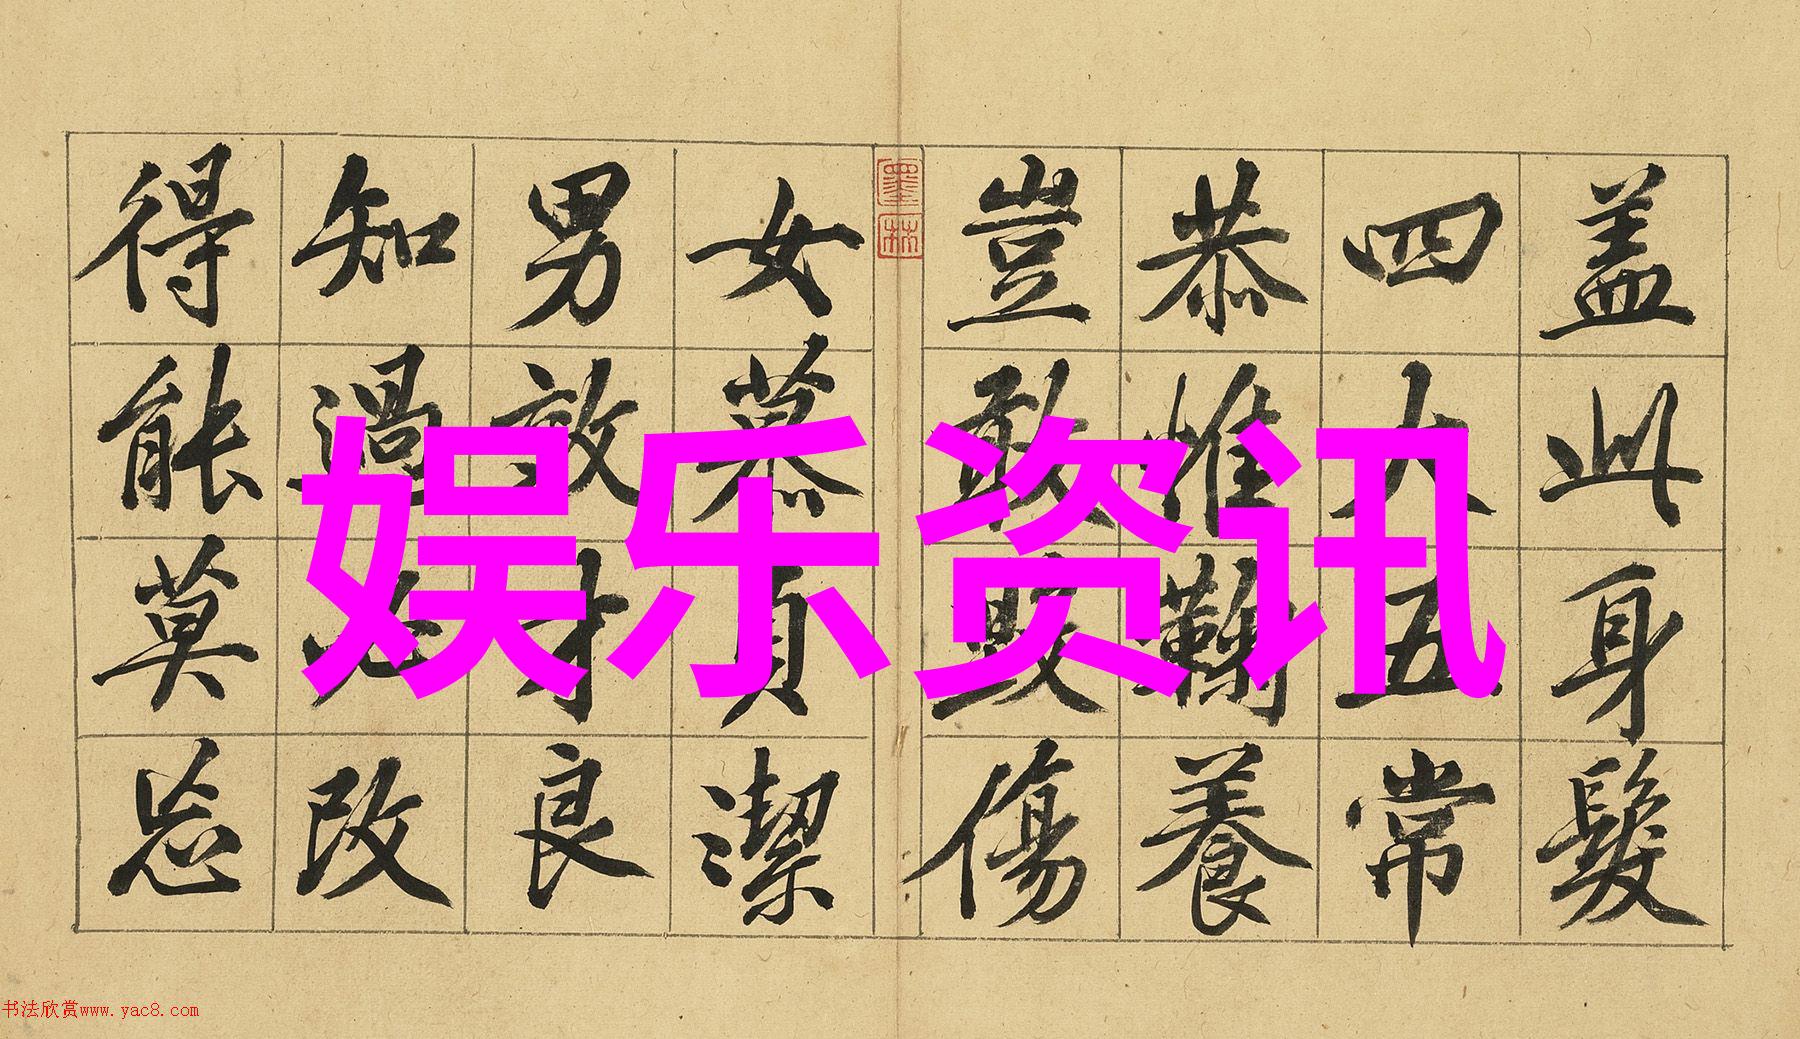 盖此身髮
四大五常
恭惟鞠養
豈敢毀傷
墨林
女慕貞潔
男效才良
知過必改
得能莫忘
娱乐资讯
书法欣赏www.yac8.com